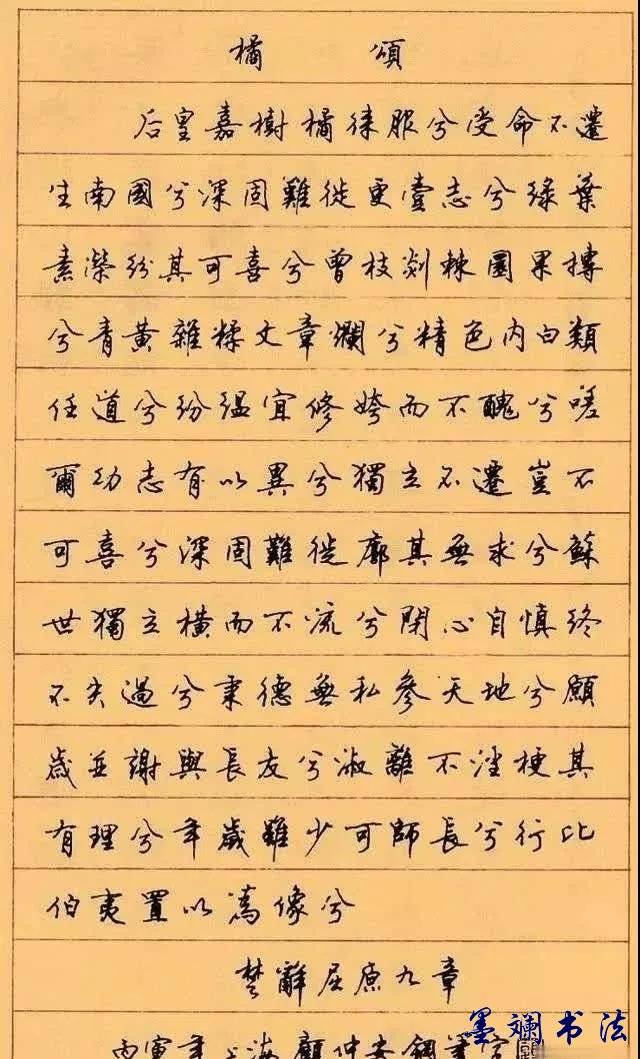 橘頌
后皇嘉樹橘徠服兮受命不遷
生南國兮深固難徙更壹志兮綠葉
素榮紛其可喜兮曾枝剡棘圜果摶
兮青黃雜糅文章爛兮精色內白類
任道兮紛緼宜修姱而不醜兮嗟
爾幼志有以異兮獨立不遷豈不
可喜兮深固難徙廓其無求兮蘇
世獨立橫而不流兮閉心自慎終
不失過兮秉德無私參天地兮願
歲並謝與長友兮淑離不淫梗其
有理兮年歲雖少可師長兮行比
伯夷置以為像兮
楚辭屈原九章
丙寅年上海顧仲安鋼筆字
墨斓书法